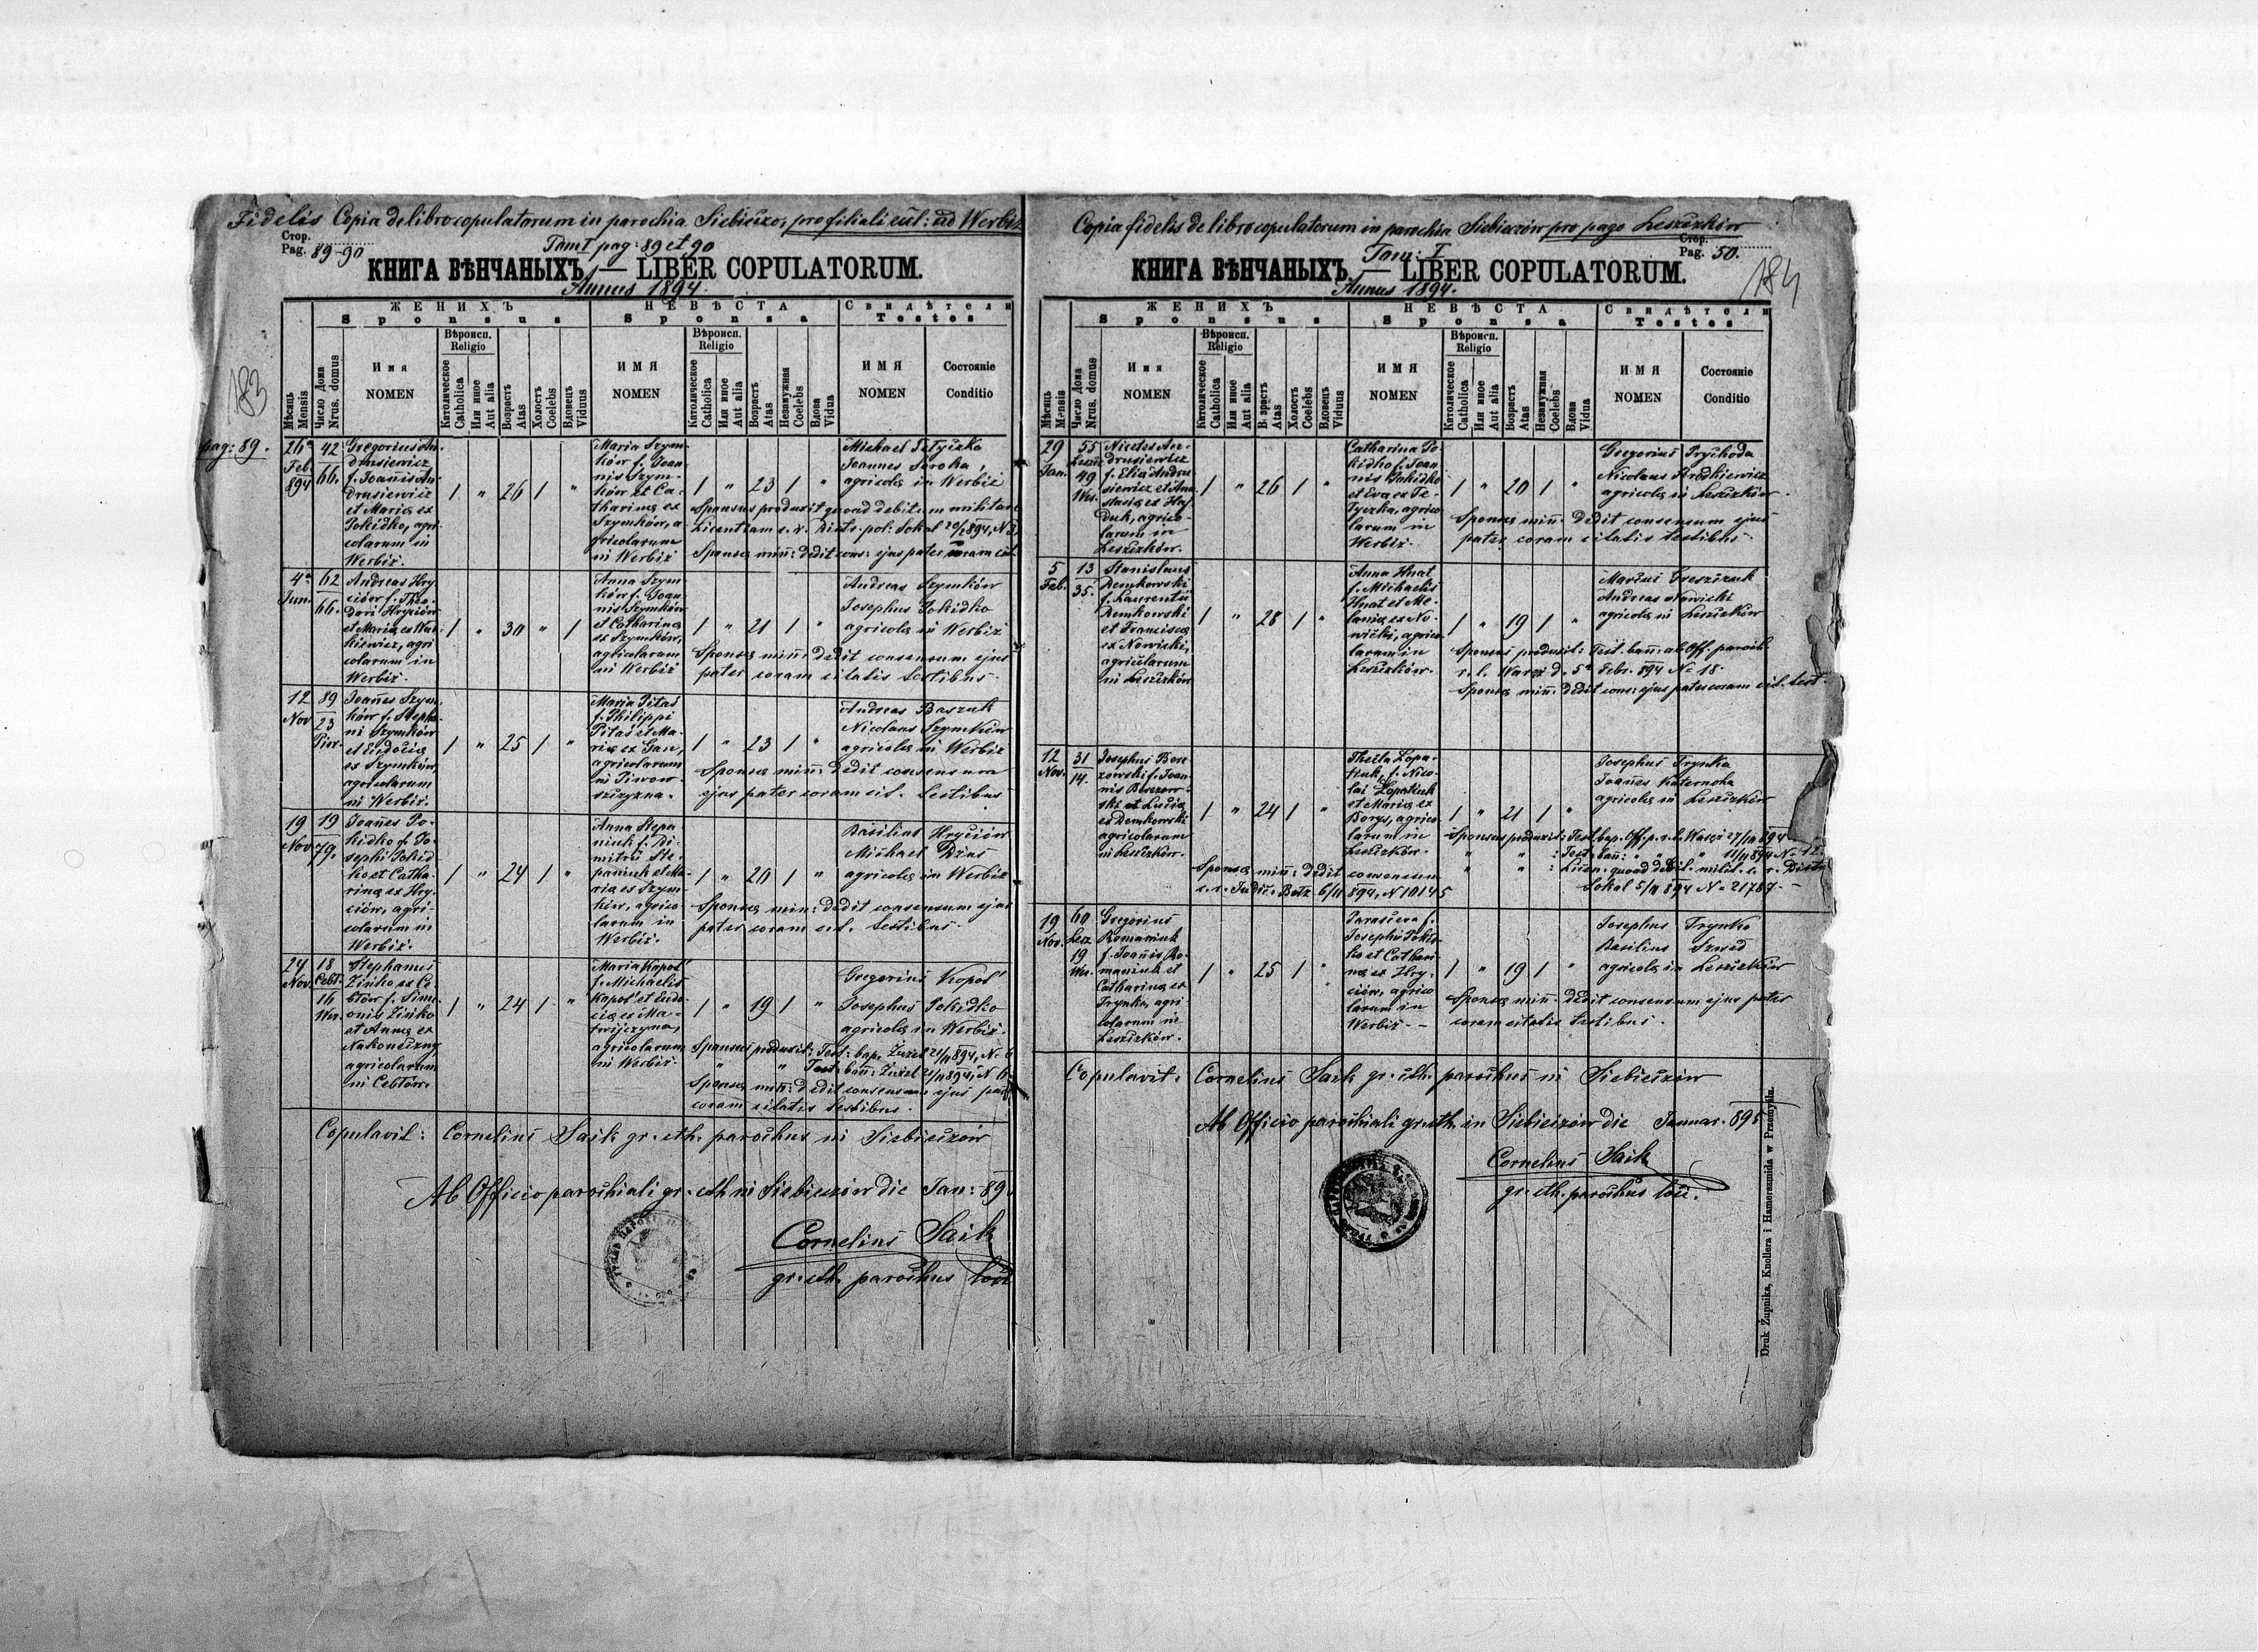 Fidelis Copia de libro copulatorum in parochia Siebieczów, pro filiali eccl: ad Werbiż
Стор.
Pag. 89-90
Tom I pag: 89 et 90
КНИГА ВѢНЧАНЫХЪ — LIBER COPULATORUM.
Annus 1894.
183
ЖЕНИХЪ
Sponsus
НЕВѢСТА
Sponsa
Свидѣтели
Testes
Мѣсяць
Mensis
Число дома
Nrus. domus
Имя
NOMEN
Вѣроисп.
Religio
Католическое
Catholica
Или иное
Aut alia
Возрастъ
Atas
Холостъ
Coelebs
Вдовецъ
Viduus
ИМЯ
NOMEN
Вѣроисп.
Religio
Католическое
Catholica
Или иное
Aut alia
Возрастъ
Atas
Незамужная
Coelebs
Вдова
Vidua
ИМЯ
NOMEN
Состояніе
Conditio
pag: 89.
26a
Feb.
894
42
66.
Gregorius An-
drusiewicz
f. Joanis An-
drusiewicz
et Maria ex
Pokidko, agri-
colarum in
Werbiż.
1 " 26 1 "
Maria Szym-
ków f. Joan-
nis Szym-
ków et Ca-
tharina ex
Szymków, a-
gricolarum
in Werbiż
1 " 23 1 "
Michael Tetyczka
Joannes Soroka,
agricolae in Werbiż
Sponsus produxit quoad debitum militare
Licentiam c. r. Distr. pol: Sokal 20/2 894, N
Sponsae min: dedit cons: ejus pater coram cit.
4a
Jun.
62
66.
Andreas Hry-
ciów f. Theo-
dori Hryciów
et Maria ex Wat-
kiewicz, agri
colarum in
Werbiż.
1 " 30 " 1
Anna Szym
ków f. Joan-
nis Szymków
et Catharina
ex Szymków,
agricolarum
in Werbiż
1 " 21 1 "
Andreas Szymków
Josephus Pokidko
agricolae in Werbiż
Sponsae min: dedit consensum ejus
pater coram citatis testibus.
12
Nov
89
23
Piw.
Joannes Szym-
ków f. Stepha-
ni Szymków
et Eudocia
ex Szymków,
agricolarum
in Werbiż.
1 " 25 1 "
Maria Pitaś
f. Philippi
Pitaś et Ma-
ria ex Gan,
agricolarum
in Piwow-
szczyzna.
1 " 23 1 "
Andreas Baszuk
Nicolaus Szymków
agricolae in Werbiż
Sponsae min: dedit consensum
ejus pater coram cit. testibus
19
Nov
19
79.
Joannes Po-
kidko f. Jo-
sephi Pokid
ko et Catha-
rina ex Hry-
ciów, agri-
colarum in
Werbiż.
1 " 24 1 "
Anna Stepa
niuk f. Di-
mitrii Ste-
paniuk et Ma-
ria ex Szym-
ków, agrico
larum in
Werbiż.
1 " 20 1 "
Basilius Hryciów
Michael Dżus
agricolae in Werbiż
Sponsae min: dedit consensum ejus
pater coram cit. testibus.
24
Nov.
18
Cebł.
16
Wer.
Stephanus
Zinko ex Ce-
błów f. Sime
onis Zinko
et Anna ex
Nakoneczny
agricolarum
in Cebłów.
1 " 24 1 "
Maria Kapoś
f. Michaelis
Kapoś et Eudo-
cia ex Ma-
twijczyna,
agricolarum
in Werbiż.
1 " 19 1 "
Gregorius Kapoś
Josephus Pokidko
agricolae in Werbiż.
Sponsus produxit: Test: bap. Żużel 21/11 894, N 6
" " Test: ban: Żużel 21/11 894, N 6
Sponsae min: dedit consensum ejus pat
coram citatis testibus.
Copulavit: Cornelius Saik gr. cth. parochus in Siebieczów
Ab Officio parochiali gr. cth in Siebieczów die Jan: 89
Cornelius Saik
gr. cth. parochus loci
Copia fidelis de libro copulatorum in parochia Siebieczów pro pago Leszczków
Стор.
Pag. 50.
Tom: I
КНИГА ВѢНЧАНЫХЪ. — LIBER COPULATORUM.
Annus 1894.
184
ЖЕНИХЪ
Sponsus
НЕВѢСТА
Sponsa
Свидѣтели
Testes
Мѣсяць
Mensis
Число дома
Nrus. domus
Имя
NOMEN
Вѣроисп.
Religio
Католическое
Catholica
Или иное
Aut alia
В зрастъ
Atas
Холостъ
Coelebs
Вдовецъ
Viduus
ИМЯ
NOMEN
Вѣроисп.
Religio
Католическое
Catholica
Или иное
Aut alia
Возрастъ
Atas
Незамужная
Coelebs
Вдова
Vidua
ИМЯ
NOMEN
Состояніе
Conditio
29
Jan.
55
Leszcz
49
Wer.
Nicetas An-
drusiewicz
f. Elia Andru
siewicz et Ana
stasia ex Haj
duk, agrico-
larum in
Leszczków.
1 " 26 1 "
Catharina Po-
kidko f. Joan
nis Pokidko
et Eva ex Te-
tyczka, agrico
larum in
Werbiż.
1 " 20 1 "
Gregorius Prychoda
Nicolaus Hrodkiewicz
agricolae in Leszczków.
Sponsae min: dedit consensum ejus
pater coram citatis testibus.
5
Feb.
13
35.
Stanislaus
Demkowski
f. Laurentii
Demkowski
et Francisca
ex Nowicki,
agricolarum
in Leszczków
1 " 28 1 "
Anna Hnat
f. Michaelis
Hnat et Me-
lania ex No-
wicki, agrico
larum in
Leszczków.
1 " 19 1 "
Marcus Greszczuk
Andreas Nowicki
agricolae in Leszczków
Sponsus produxit: Test. ban: ab Off. paroch
r. l. Waręż d. 5a Febr. 894 No 18.
Sponsae min: dedit cons: ejus pater coram cit. test.
12
Nov.
31
14.
Josephus Bere
zowski f. Joan
nis Berezow-
ski et Lucia
ex Demkowski
agricolarum
in Leszczków.
1 " 24 1 "
Thecla Łopa-
tiuk, f. Nico-
lai Łopatiuk
et Maria ex
Borys, agrico
larum in
Leszczków.
1 " 21 1 "
Josephus Trynka
Joannes Katernoha
agricolae in Leszczków
Sponsus produxit: Test. bap. Off. p. r. l. Waręż 27/10 894
" " : Test: ban: " " " 11/11 894 No 12.
" " : Licen. quoad debit. milit. c. r. Distr
Sokal 5/11 894 No 21787.
Sponsae min: dedit consensum
c. r. Judic. Bełz 6/11 894, N 10145
19
Nov.
60
Lesz
19
Wer.
Gregorius
Romaniuk
f. Joannis Ro-
maniuk et
Catharina ex
Trynka, agri
colarum in
Leszczków.
1 " 25 1 "
Parasceva f.
Josephi Pokid-
ko et Cathari
na ex Hry-
ciów, agrico
larum in
Werbiż
1 " 19 1 "
Josephus Trynko
Basilius Szwed
agricolae in Leszczków
Sponsae min: dedit consensum ejus pater
coram citatis testibus.
Copulavit: Cornelius Saik gr. cth. parochus in Siebieczów
Ab Officio parochiali gr. cth. in Siebieczów die Januar. 895
Cornelius Saik
gr. cth. parochus loci.
Druk Żupnika, Knollera i Hamerszmida w Przemyślu.